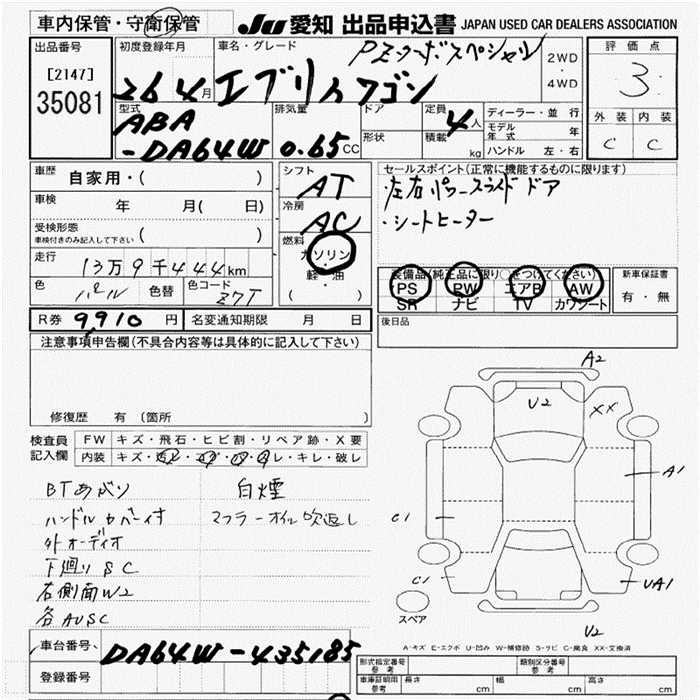 車内保管・守衛保管
JU 愛知 出品申込書 JAPAN USED CAR DEALERS ASSOCIATION
出品番号
[2147]
35081
初度登録年月
26 4月
車名・グレード
PZターボスペシャル
エブリィワゴン
2WD
・
4WD
評価点
3
外装 内装
C C
型式
ABA
-DA64W
排気量
0.65cc
ドア
形状
定員
4人
積載 kg
ディーラー・並行
モデル年式 年
ハンドル 左・右
車歴
自家用・( )
車検 年 月( 日)
受検形態
車検付きのみ記入して下さい ( )
走行
13万9千444km
色 パール 色替 色コード Z7T
シフト
AT
冷房
AC
燃料
ガソリン
・
軽・油
( )
セールスポイント(正常に機能するものに限ります)
・左右パワースライドドア
・シートヒーター
装備品(純正品に限り○をつけてください)
PS PW エアB AW
SR ナビ TV カワシート
新車保証書
有・無
R券 9,910 円 名変通知期限 月 日
後日品
注意事項申告欄(不具合内容等は具体的に記入して下さい)
修復歴 有 (箇所
検査員
記入欄
FW キズ・飛石・ヒビ割・リペア跡・X要
内装 キズ・ ・キレ・破レ
BTあがり
ハンドルカバー付
外オーディオ
下廻りSC
右側面W2
各AUSC
白煙
マフラーオイル吹返し
A2
U2
XX
A1
C1
C1
UA1
U2
スペア
A・キズ E・エクボ U・凹み W・補修跡 S・サビ C・腐食 XX・交換済
車台番号 DA64W-435185
登録番号
形式指定番号
参考
類別区分番号
参考
車庫証明用
参考
長さ cm 幅 cm 高さ cm